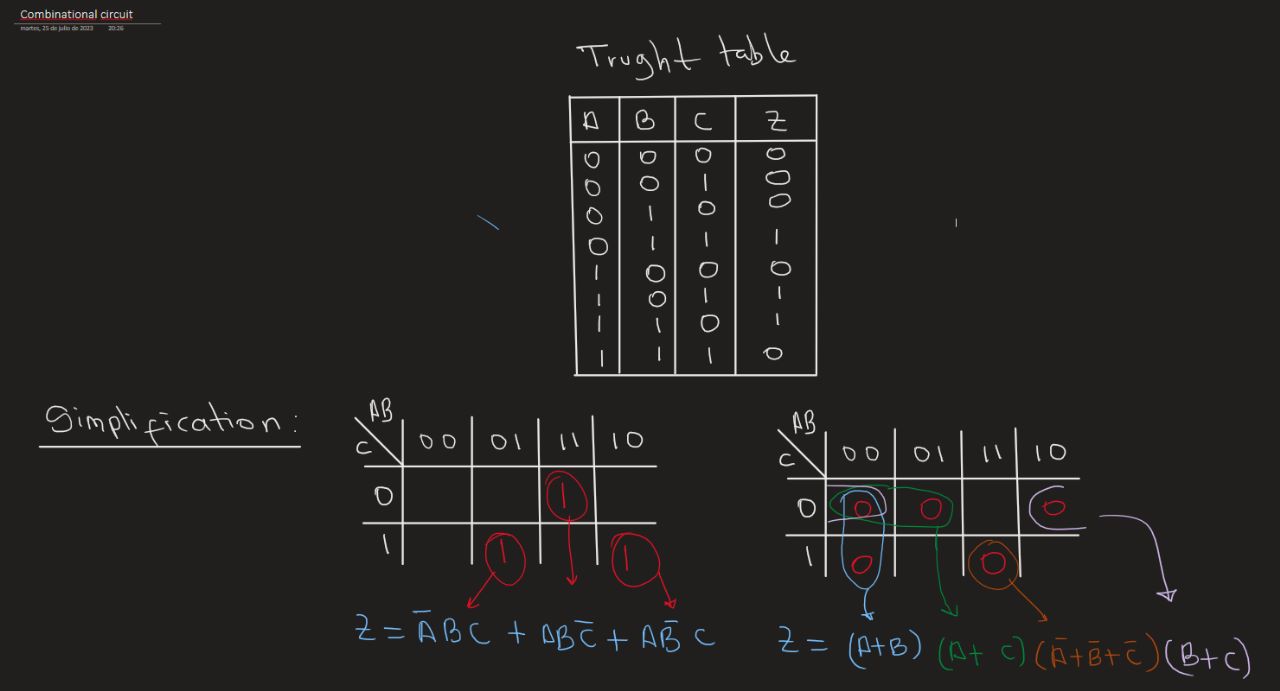 Combinational circuit
martes, 25 de julio de 2023 20:26
Trught table
A B C Z
0 0 0 0
0 0 1 0
0 1 0 0
0 1 1 1
1 0 0 0
1 0 1 1
1 1 0 1
1 1 1 0
Simplification:
AB
C 00 01 11 10
0 1
1 1 1
Z = A̅BC + ABC̅ + AB̅C
AB
C 00 01 11 10
0 0 0 0
1 0 0
Z = (A+B) (A+C) (A̅+B̅+C̅) (B+C)